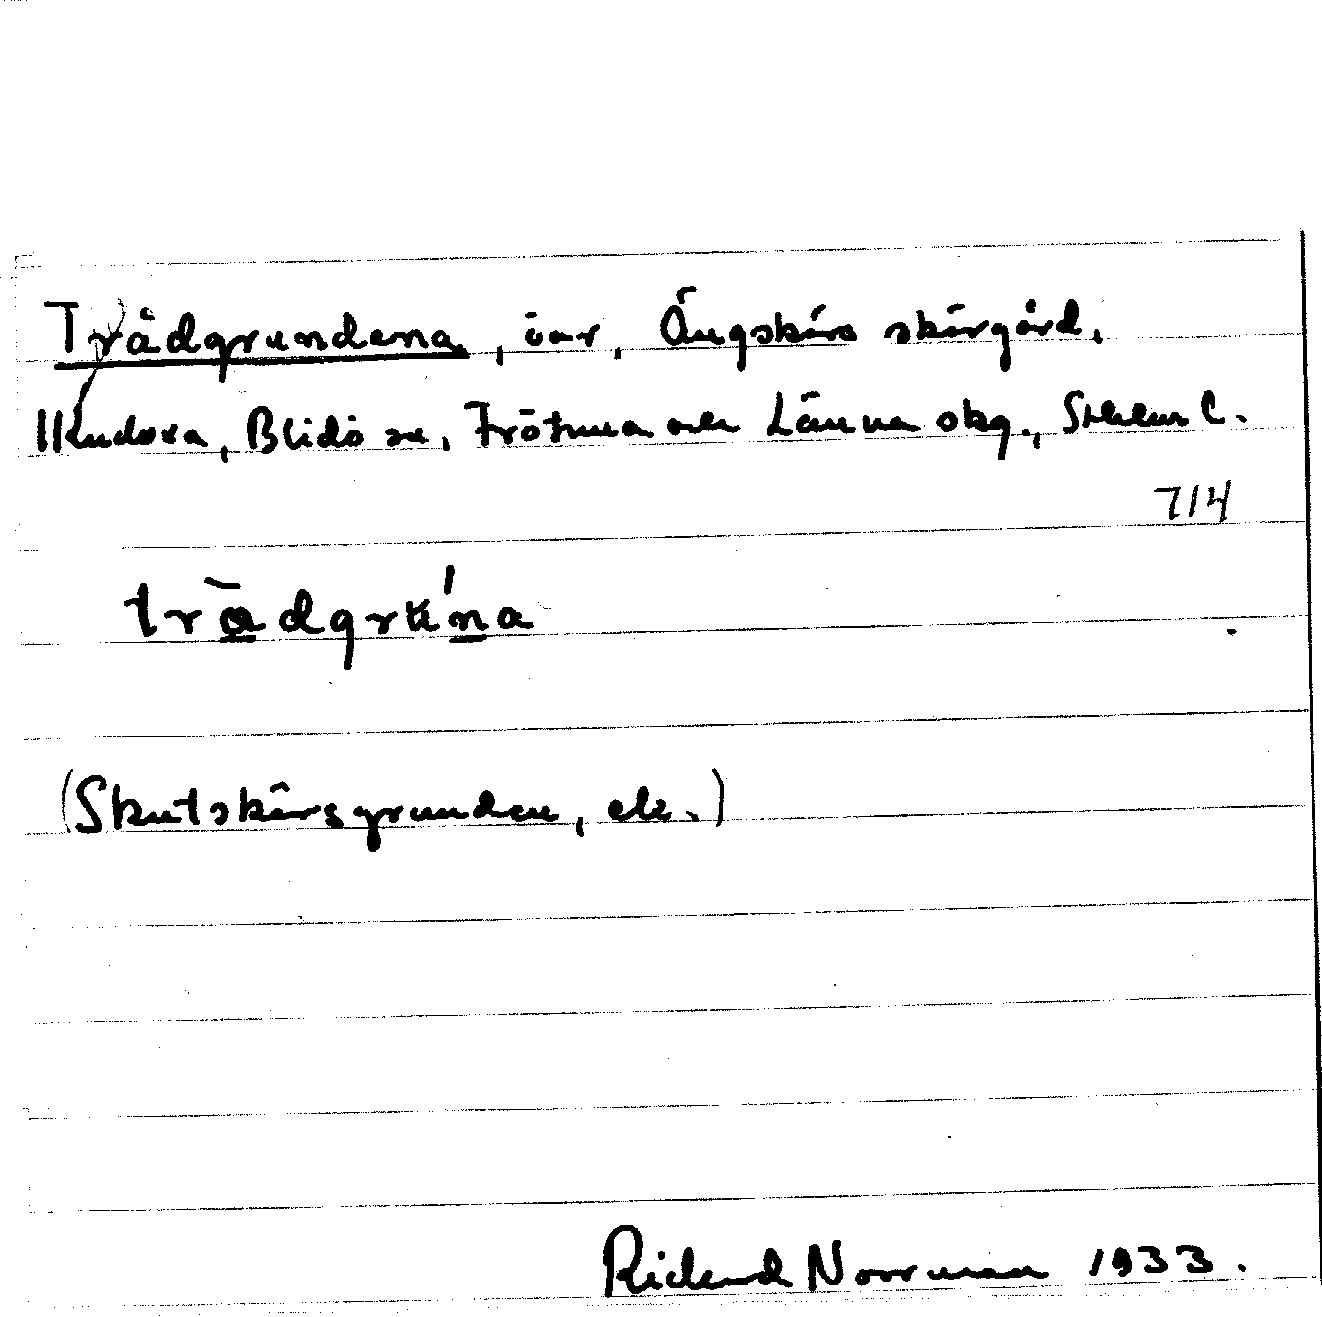 Trådgrundena, öar, Ängskärs skärgård.
Kudoxa, Blidö sn, Frötuna och Länna skg., Sthlm l.
714
trādgrúna
(Skutskärsgrunden, etc.)
Richard Norrman 1933.